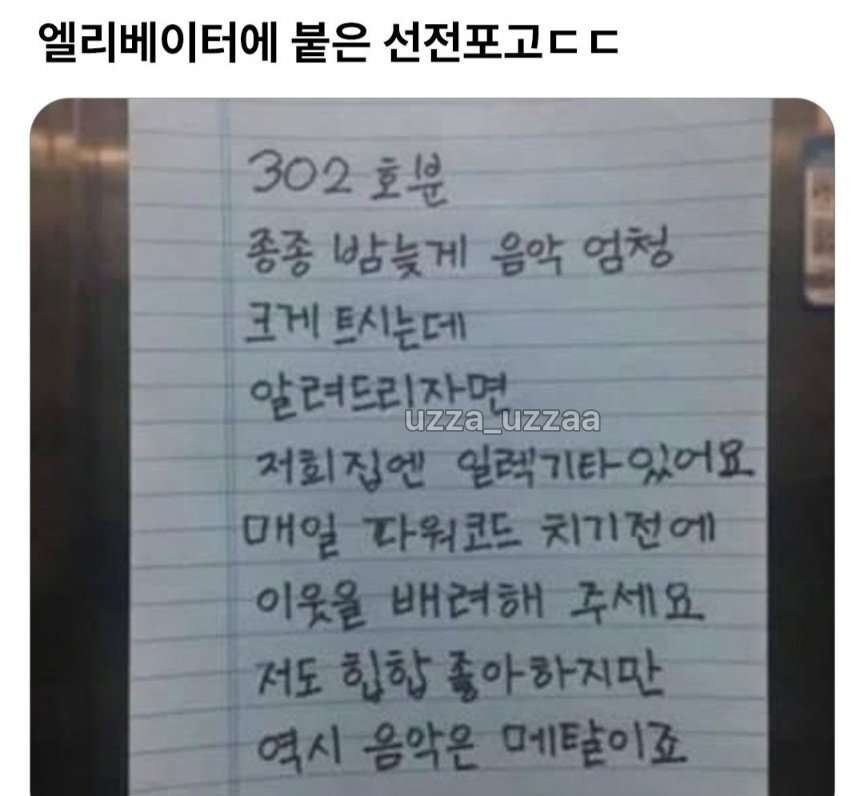 엘리베이터에 붙은 선전포고ㄷㄷ
302 호분
종종 밤늦게 음악 엄청
크게 트시는데
알려드리자면
uzza_uzzaa
저희집엔 일렉기타있어요
매일 파워코드 치기전에
이웃을 배려해 주세요
저도 힙합 좋아하지만
역시 음악은 메탈이죠